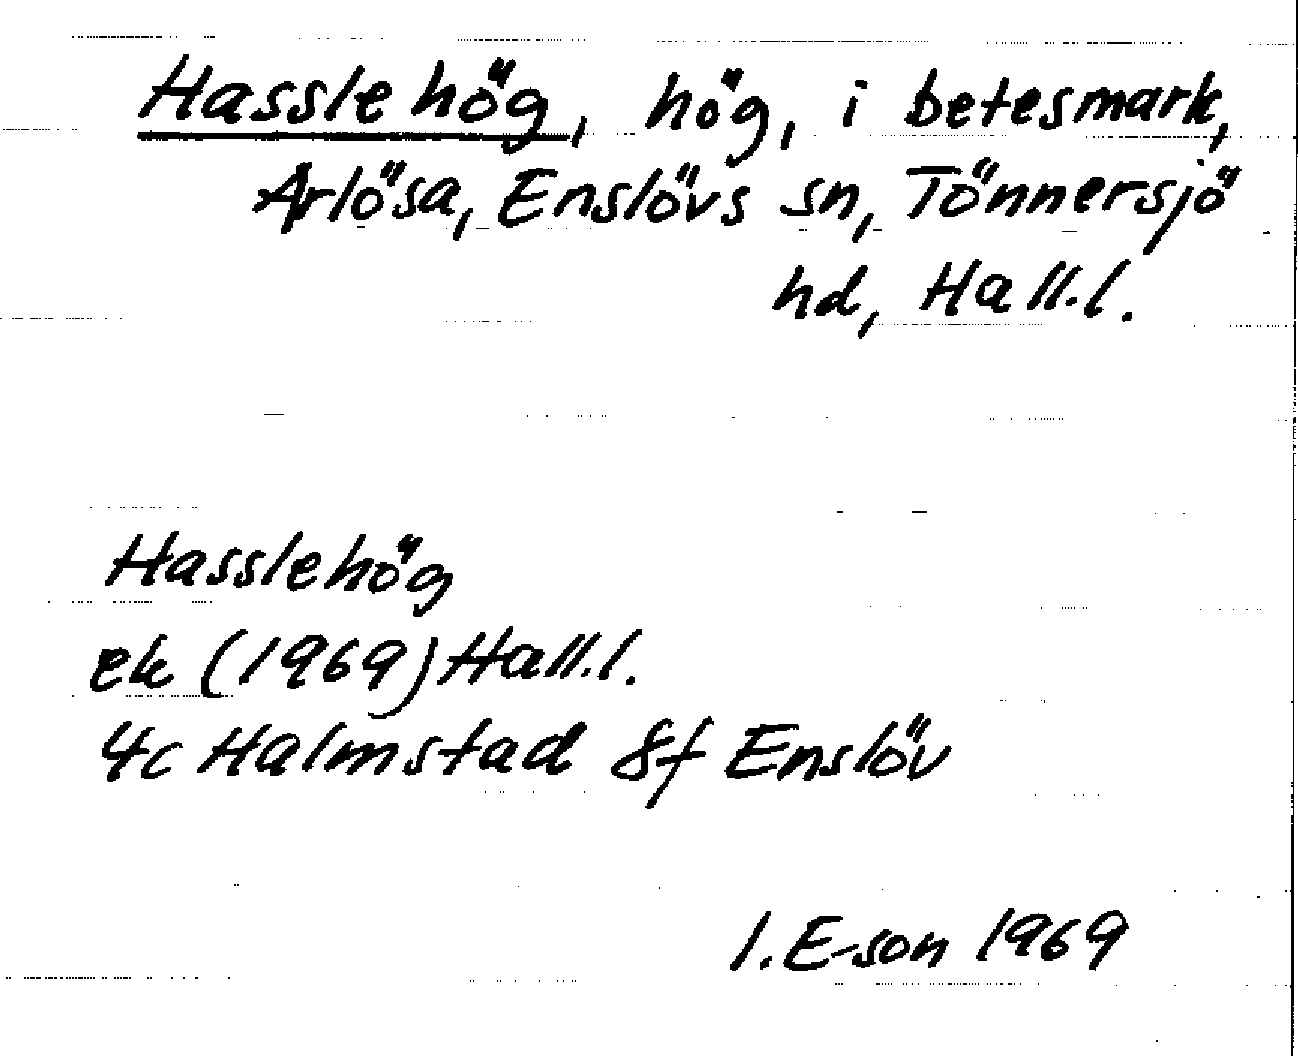 Hasslehög, hög, i betesmark,
Arlösa, Enslövs sn, Tönnersjö
hd, Hall.l.
Hasslehög
ek (1969) Hall.l.
4c Halmstad 8f Enslöv
I. E-son 1969